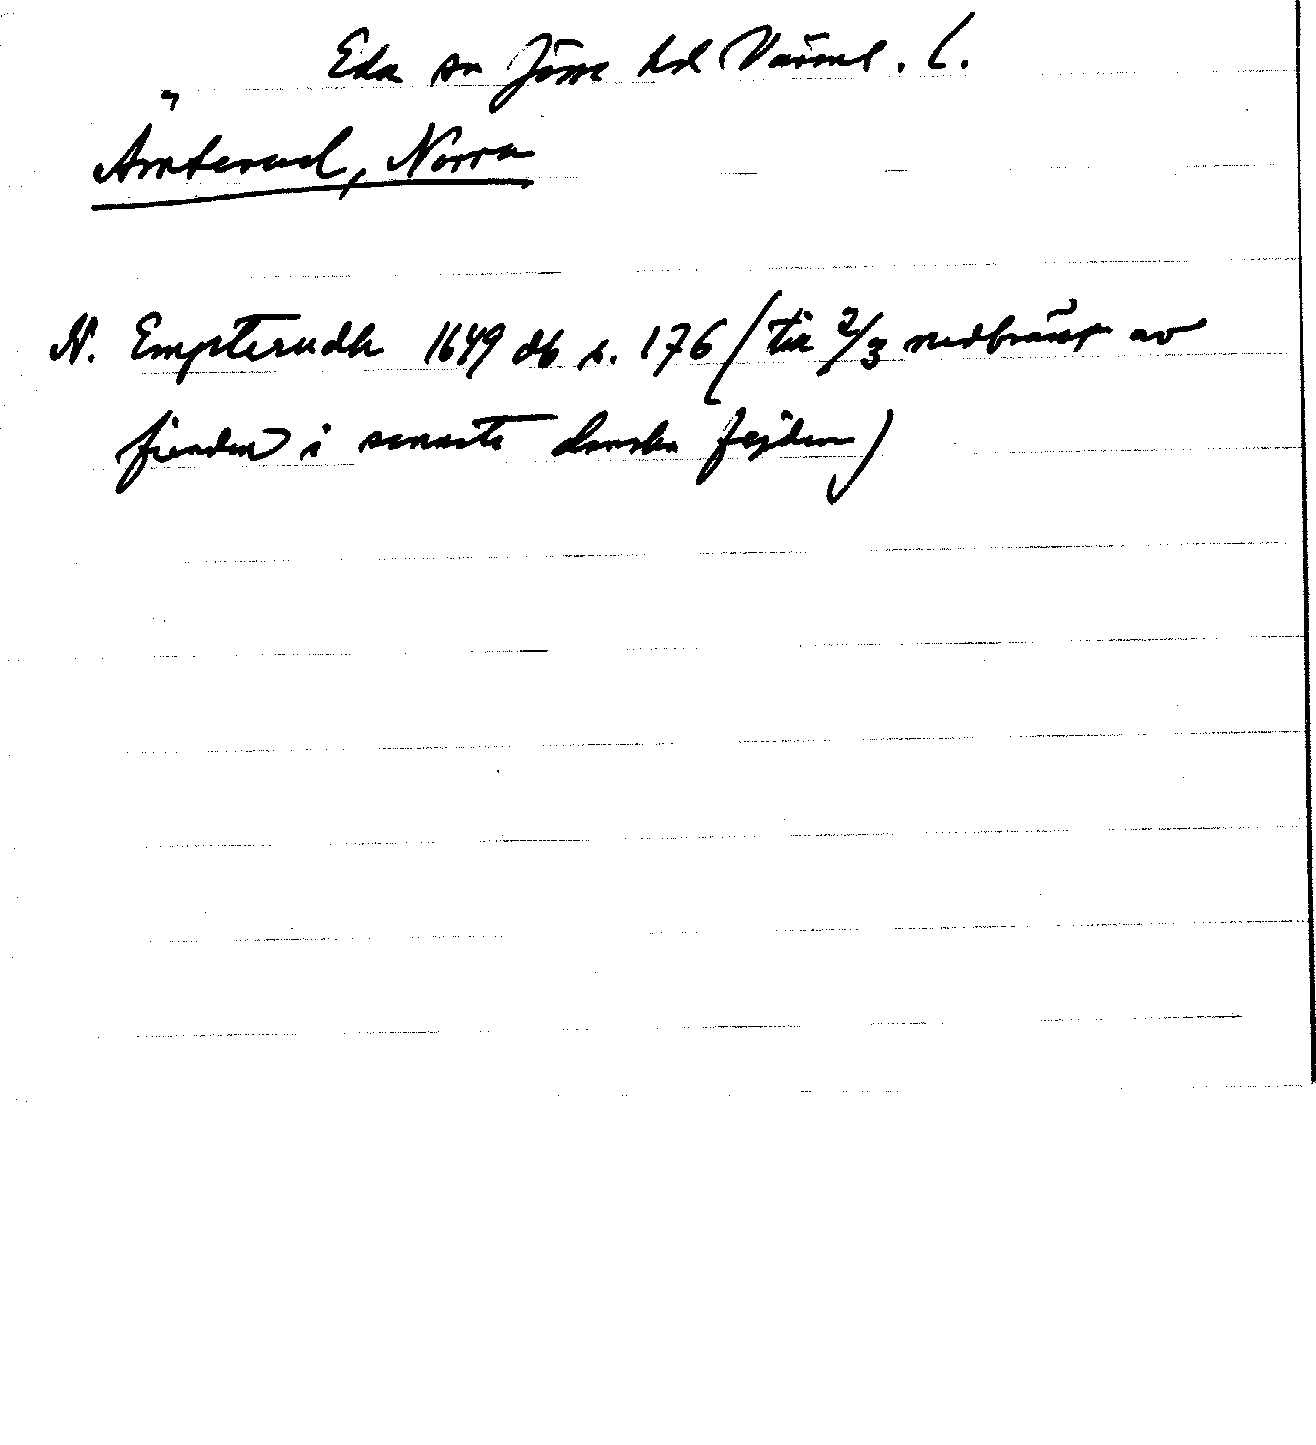 Eda sn Jösse hd Värml. l.
Ämterud, Norra
N. Empterudh 1649 db s. 176 (till 2/3 nedbränt av
fienden i senaste danska fejden)